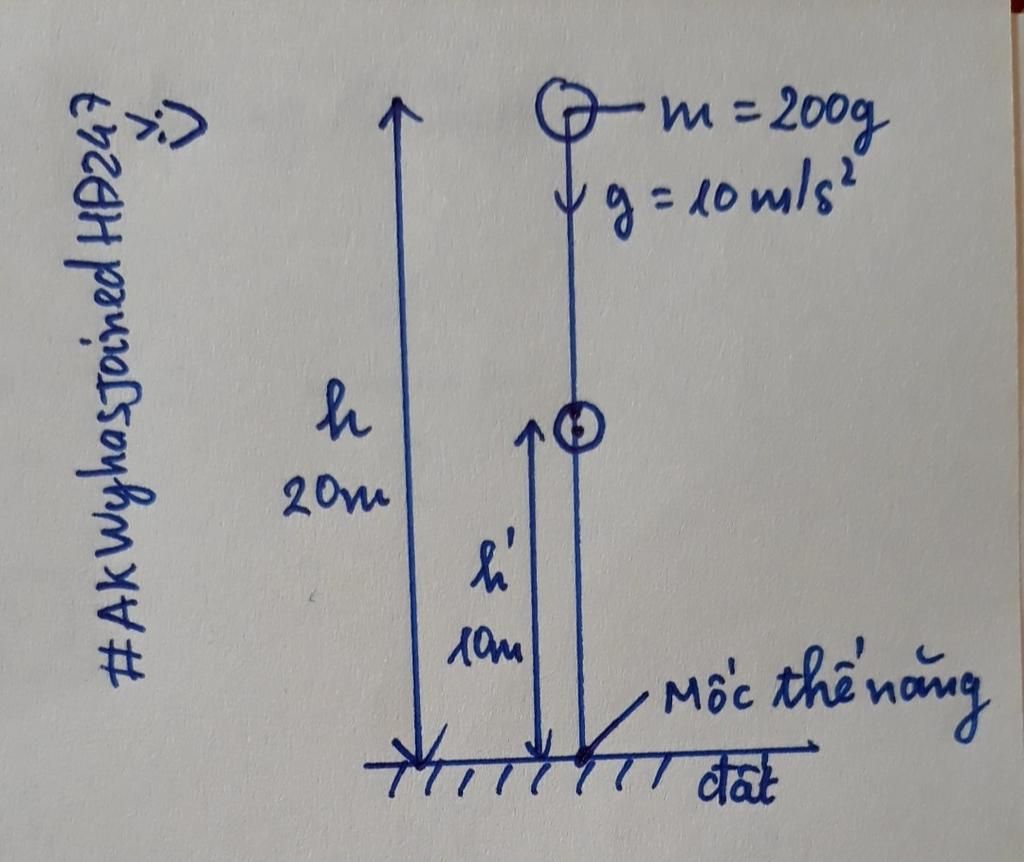 #AKWyhasjoinedHĐ247
>:)
m = 200g
g = 10m/s²
h
20m
h'
10m
Mốc thế năng
đất